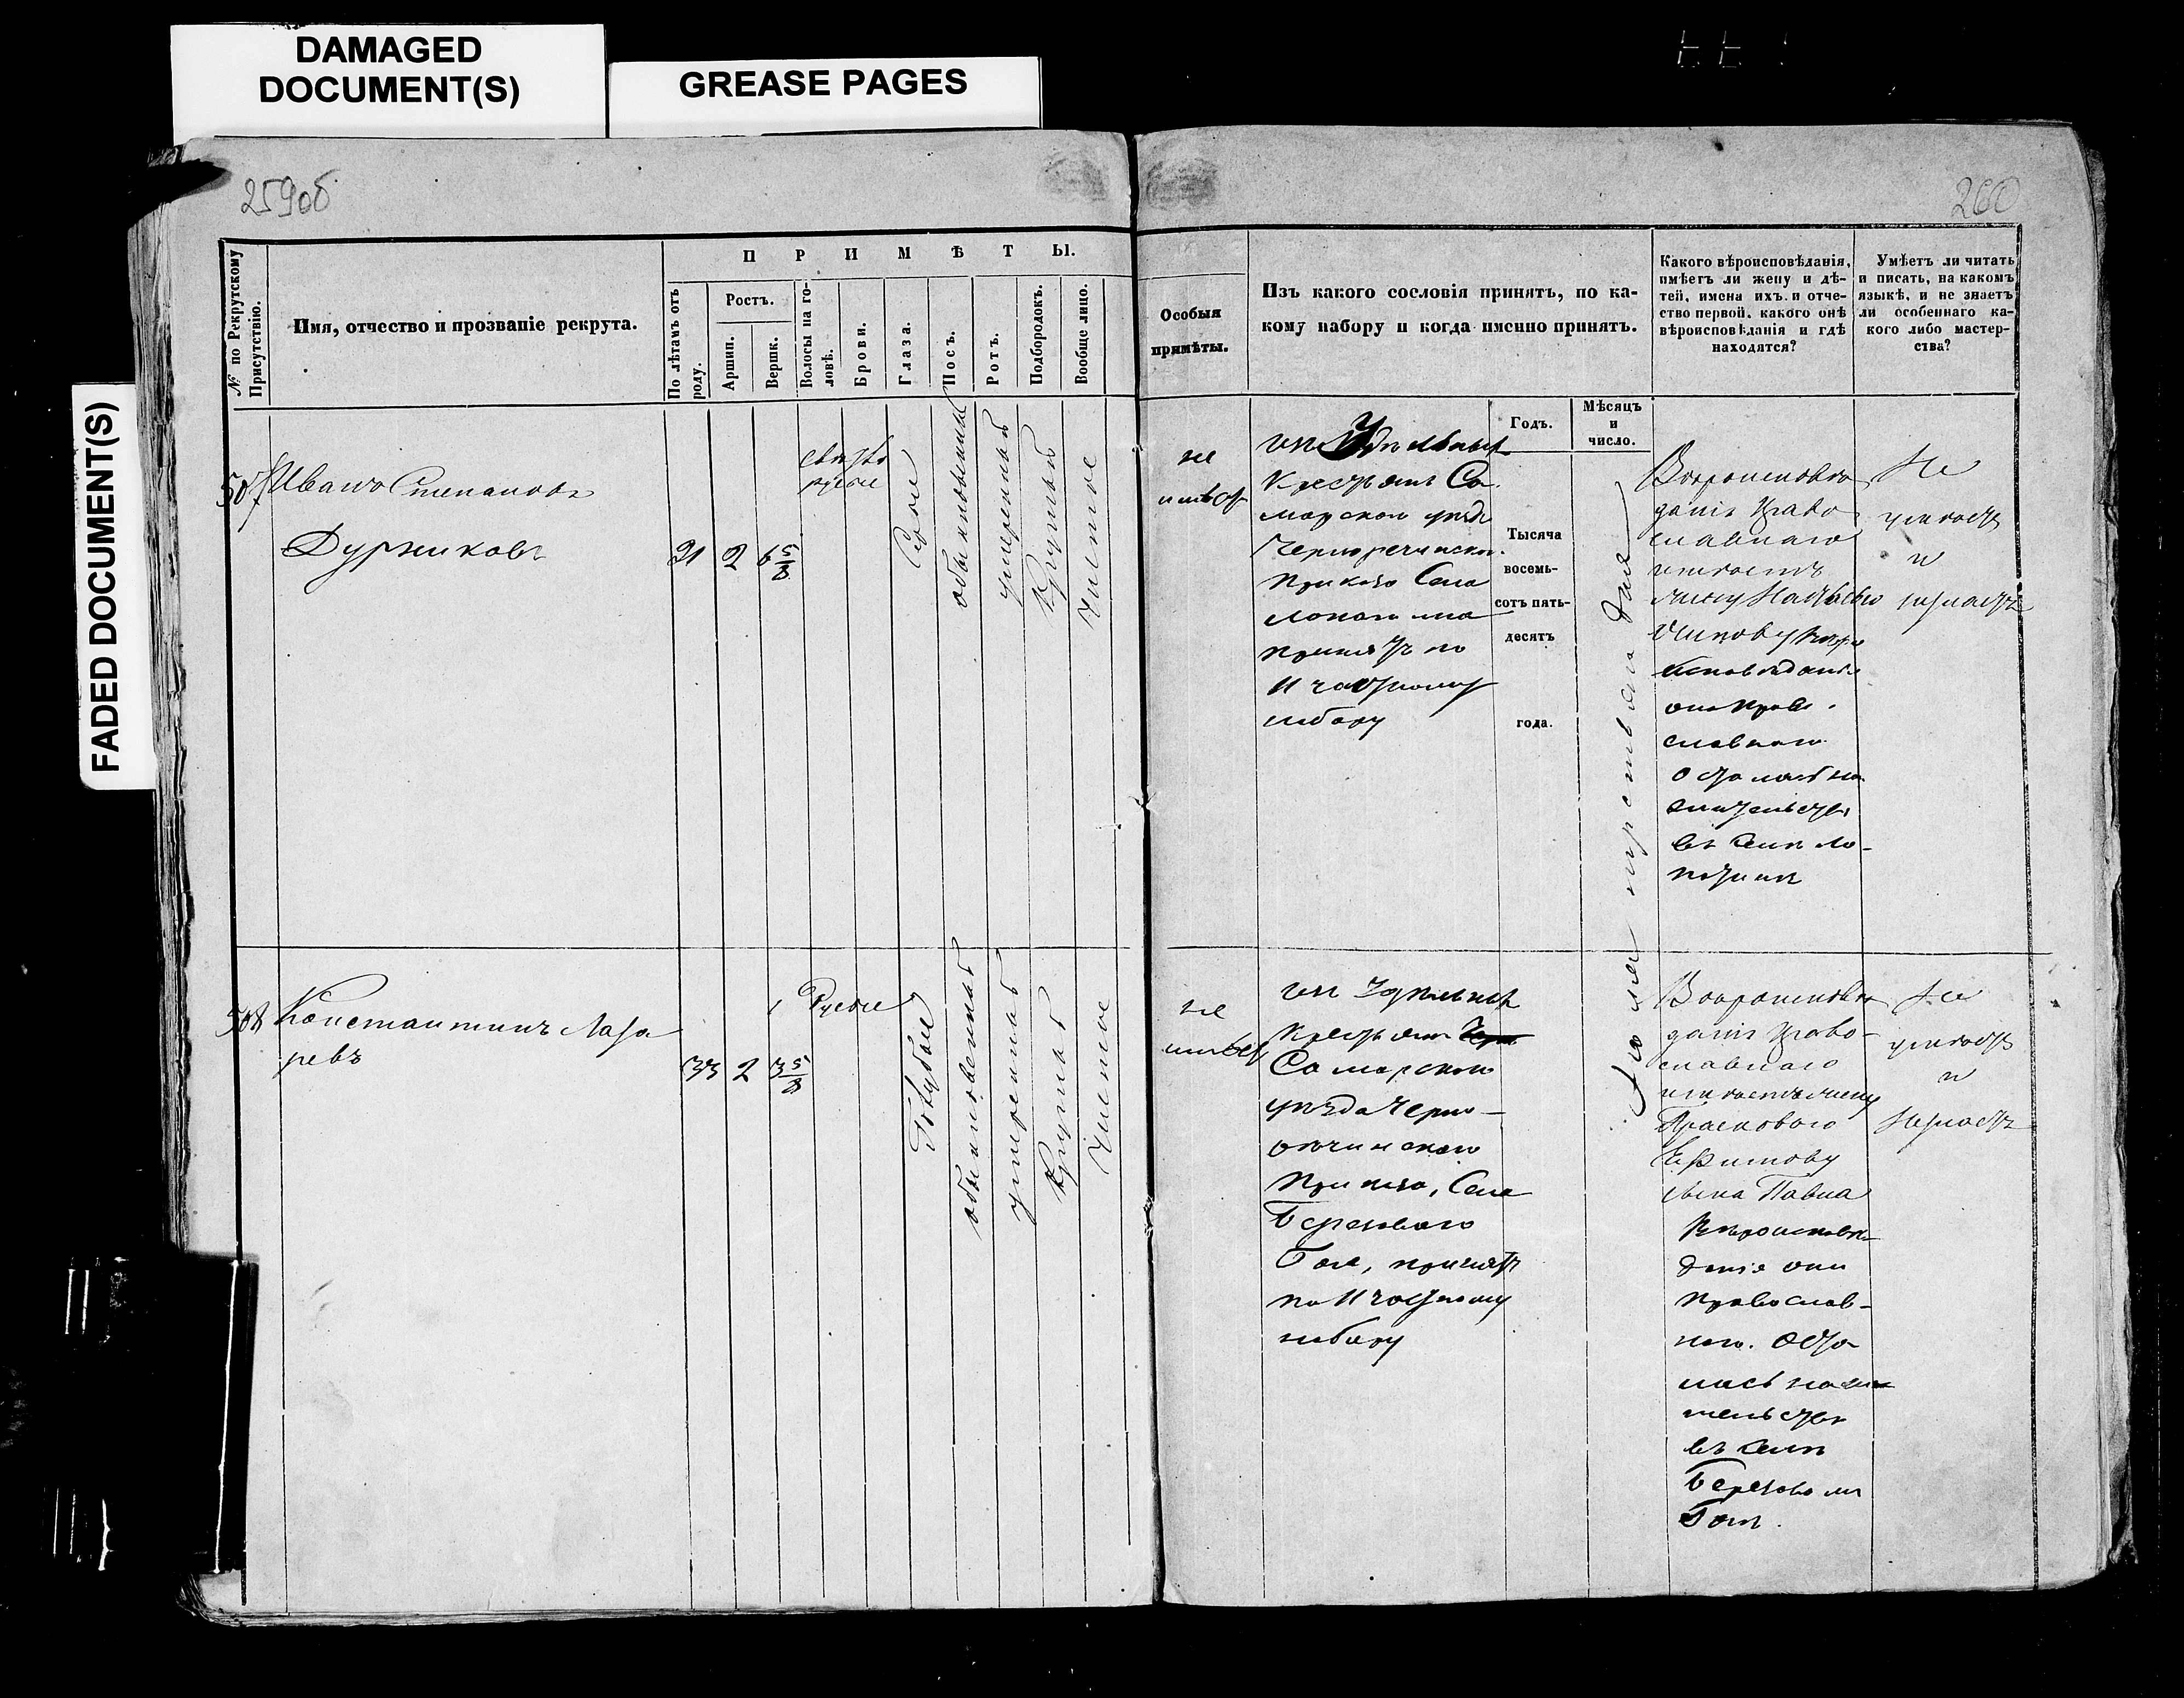 DAMAGED
DOCUMENT(S)
GREASE PAGES
FADED DOCUMENT(S)
259об
260
№ по Рекрутскому
Присутствію.
Имя, отчество и прозваніе рекрута.
П Р И М Ѣ Т Ы.
По лѣтамъ отъ
роду.
Ростъ.
Аршин.
Вершк.
Волосы на го-
ловѣ.
Брови.
Глаза.
Носъ.
Ротъ.
Подбородокъ.
Вообще лицо.
Особыя
примѣты.
Изъ какого сословія принятъ, по ка-
кому набору и когда именно принятъ.
Какого вѣроисповѣданія,
имѣетъ ли жену и дѣ-
тей, имена ихъ и отче-
ство первой, какого онѣ
вѣроисповѣданія и гдѣ
находятся?
Умѣетъ ли читать
и писать, на какомъ
языкѣ, и не знаетъ
ли особеннаго ка-
кого либо мастер-
ства?
Годъ.
Мѣсяцъ
и
число.
Тысяча
восемь-
сотъ пять-
десятъ
года.
507
Иванъ Степановъ
Дурниковъ
21
2
6 5/8
свѣтло
русые
Серые
обыкновенный
умеренный
Круглый
Чистое
не
имѣетъ
изъ Удѣльныхъ
Крестьянъ Са-
марскаго уѣзда
Чернореченскаго
Приказа Села
Лопатина
принятъ по
11 частному
набору
Июля третьяго дня
Вѣроисповѣ
данія Право
славнаго
имѣетъ
жену Настасью
вѣро
исповѣданія
она Право
славнаго
Осталась на
жительствѣ
въ селѣ Ло-
патинѣ
Не
умѣетъ
и
незнаетъ
508
Константинъ Лаза
ревъ
33
2
3 5/8
Русые
Голубые
обыкновенный
умеренный
Круглый
Чистое
не
имѣетъ
изъ Удѣльныхъ
Крестьянъ
Самарскаго
уѣзда Черно-
Приказа, Села
Березоваго
Гая, принятъ
по 11 частному
набору
Вѣроисповѣ
данія Право-
славнаго
имѣетъ жену
Прасковью
Ефимову
сына Павла
Вѣроисповѣ-
данія они
Православ-
наго. Оста
лись на жи
тельствѣ
въ селѣ
Березовомъ
Гаѣ.
Не
умѣетъ
и
Незнаетъ